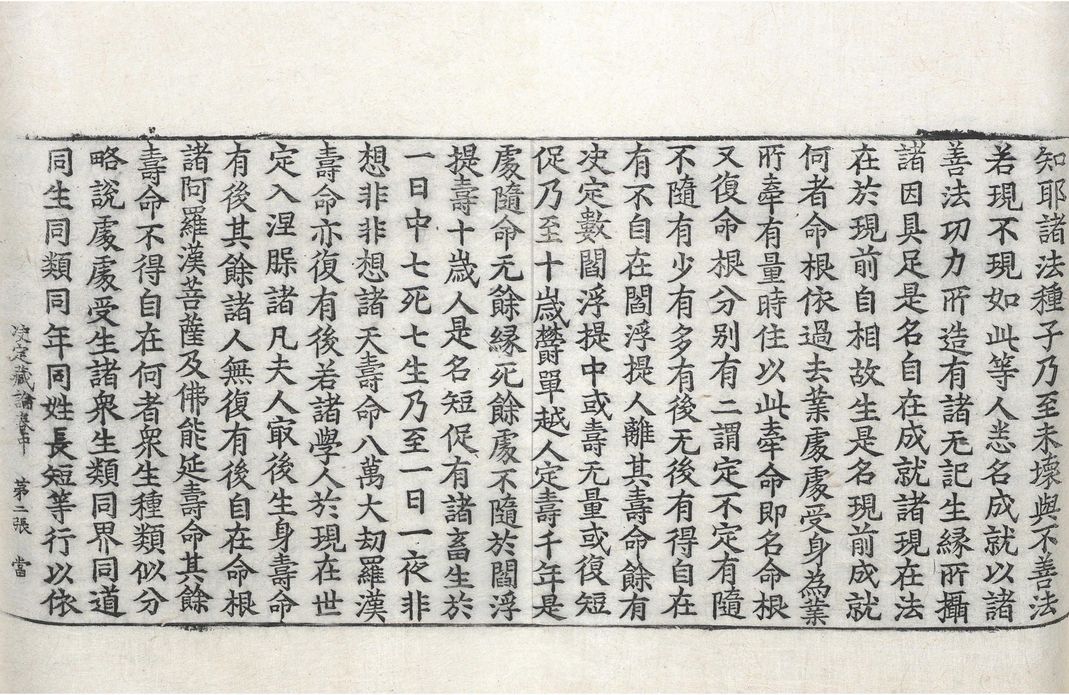 知耶諸法種子乃至未壞與不善法
若現不現如此等人悉名成就以諸
善法功力所造有諸无記生緣所攝
諸因具足是名自在成就諸現在法
在於現前自相故生是名現前成就
何者命根依過去業處處受身為業
所牽有量時住以此牽命即名命根
又復命根分别有二謂定不定有隨
不隨有少有多有後无後有得自在
有不自在閻浮提人離其壽命餘有
决定數閻浮提中或壽无量或復短
促乃至十歲欝單越人定壽千年是
處隨命无餘緣死餘處不隨於閻浮
提壽十歲人是名短促有諸畜生於
一日中七死七生乃至一日一夜非
想非非想諸天壽命八萬大劫羅漢
壽命亦復有後若諸學人於現在世
定入涅槃諸凡夫人㝡後生身壽命
有後其餘諸人無復有後自在命根
諸阿羅漢菩薩及佛能延壽命其餘
壽命不得自在何者衆生種類似分
略說處處受生諸衆生類同界同道
同生同類同年同姓長短等行以依
决定藏論卷中 第二張 當